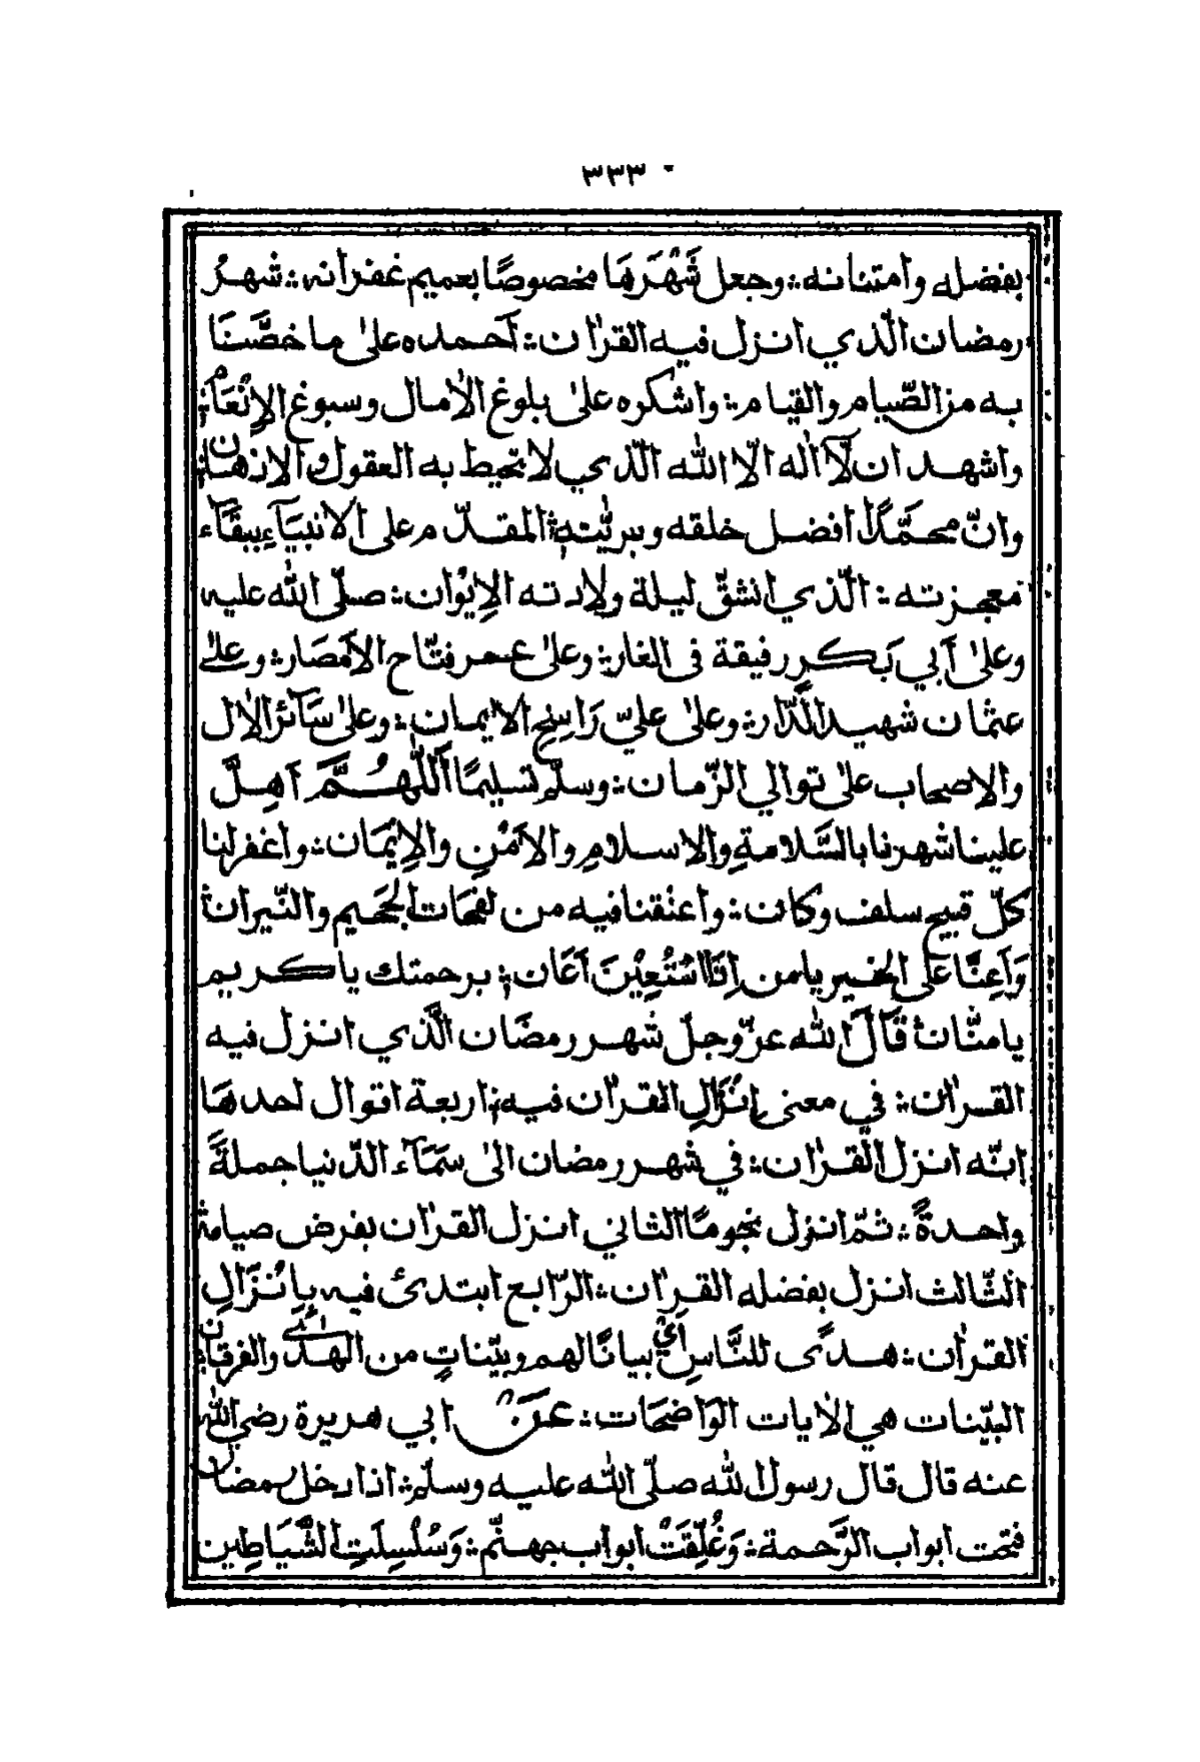 ٣٣٣
بفضله وامتنانه؞ وجعل شَهْرَهَا مخصوصًا بعميم غفرانه؞ شهرُ
رمضان الّذي انزل فيه القراٰن؞ آحمده علىٰ ما خصَّنَا
به من الصّيام والقيام؞ واشكره علىٰ بلوغ الاٰمال وسبوغ الاِنْعَامْ؞
واشهد ان لَّآ اله الّا اللّٰه الّذي لا تحيط به العقول والاذهان؞
وانّ محمَّدًا افضل خلقه وبريّته؞ المقدّم على الانبيَآءِ ببقَآء
معجزته؞ الّذي انشقّ ليلة ولادته الاِيْوان؞ صلّى اللّٰه عليه
وعلىٰ آبي بَكر رفيقة فى الغار؞ وعلىٰ عمر فتّاح الاَمْصَار؞ وعلىٰ
عثمان شهيد الدَّار؞ وعلىٰ عليّ رَاسِخِ الايمان؞ وعلىٰ سَآئر الاٰل
والاصحاب علىٰ توالي الزّمان؞ وسلّم تسليمًا اَللّٰهُمَّ آهِلَّ
علينا شهرنا بالسَّلامةِ والاسلامِ والاَمْنِ والاِيْمَان؞ واغفر لنا
كلّ قبيح سلف وكان؞ واعتقنا فيه من لفحات الجَحيم والنّيران؞
وَاَعِنَّا عَلَى الخير يا من اِذَا اسْتُعِيْنَ آعَان؞ برحمتك يا كريم
يا منّان؞ قَالَ اللّٰه عزّ وجلّ شهر رمضَان الَّذي انزل فيه
القراٰن؞ في معنى اِنْزَالِ القراٰن فيه؞ اربعة اقوال احدهَا
اِنّه انزل القراٰن؞ في شهر رمضان الىٰ سَمَآء الدّنيا جملةً
واحدةً؞ ثمّ انزل نجومًا الثاني انزل القراٰن بفرض صيامه؞
الثّالث انزل بفضله القراٰن؞ الرّابع ابتدئ فيه بِاِنْزَالِ
القراٰن؞ هدًى للنَّاسِ اَيْ بيانًا لهم وبيّناتٍ من الهدٰى والفرقان؞
البيّنات هي الاٰيات الوَاضحَات؞ عَنْ ابي هريرة رضي اللّٰه
عنه قال قال رسول اللّٰه صلّى اللّٰه عليه وسلّم؞ اذا دخل رمضان
فتحت ابواب الرَّحمة؞ وَغُلِّقَتْ ابواب جهنّم؞ وَسُلْسِلَتِ الشَّيَاطِين